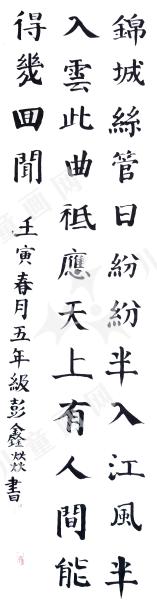 錦城絲管日紛紛半入江風半
入雲此曲祗應天上有人間能
得幾回聞
壬寅春月五年級彭鑫焱書